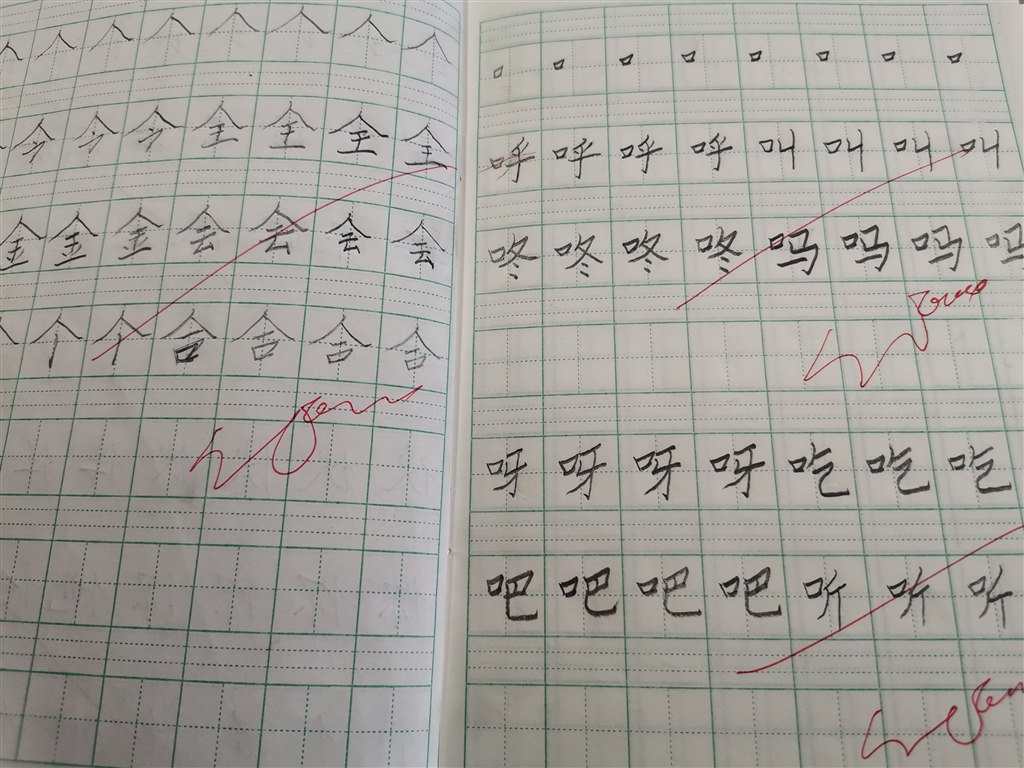 人 人 人 人 人 人 人 人
今 今 今 全 全 全 全
金 金 金 会 会 会 会
个 个 个 舍 舍 舍 舍
口 口 口 口 口 口 口 口
呼 呼 呼 呼 叫 叫 叫 叫
咚 咚 咚 咚 吗 吗 吗 吗
呀 呀 呀 呀 吃 吃 吃
吧 吧 吧 吧 听 听 听